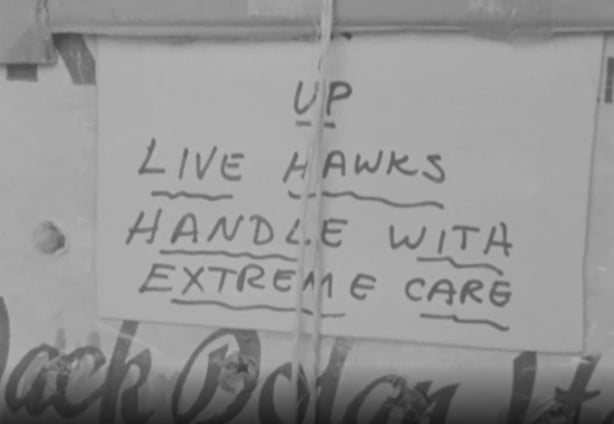 UP
LIVE HAWKS
HANDLE WITH
EXTREME CARE
Jack Dolan